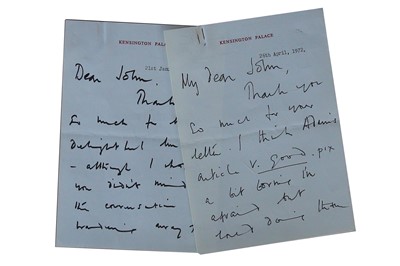 KENSINGTON PALACE
21st Jan
Dear John,
Thank
so much for
delightful
- although I
you didn't mind
the conversation
wandering away
KENSINGTON PALACE
26th April, 1972,
My dear John,
Thank you
so much for your
letter. I think
article v. good. pix
a bit boring I'm
afraid but
loved doing them